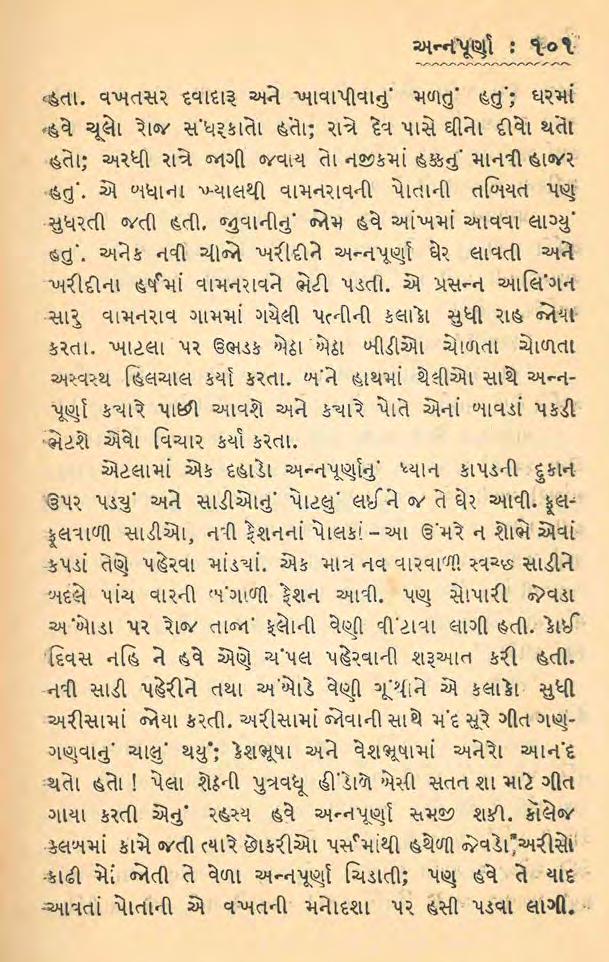 અન્નપૂર્ણા : ૧૦૧
હતા. વખતસર દવાદારૂ અને ખાવાપીવાનું મળતું હતું; ઘરમાં
હવે ચૂલો રોજ સંધરૂકાતો હતો; રાત્રે દેવ પાસે ઘીનો દીવો થતો
હતો; અરધી રાત્રે જાગી જવાય તો નજીકમાં હક્કનું માનવી હાજર
હતું. એ બધાના ખ્યાલથી વામનરાવની પોતાની તબિયત પણ
સુધરતી જતી હતી. જુવાનીનું જોમ હવે આંખમાં આવવા લાગ્યું
હતું. અનેક નવી ચીજો ખરીદીને અન્નપૂર્ણા ઘેર લાવતી અને
ખરીદીના હર્ષમાં વામનરાવને ભેટી પડતી. એ પ્રસન્ન આલિંગન
સારુ વામનરાવ ગામમાં ગયેલી પત્નીની કલાકો સુધી રાહ જોયા
કરતા. ખાટલા પર ઉભડક બેઠા બેઠા બીડીઓ ચોળતા ચોળતા
અસ્વસ્થ હિલચાલ કર્યા કરતા. બંને હાથમાં થેલીઓ સાથે અન્ન-
પૂર્ણા ક્યારે પાછી આવશે અને ક્યારે પોતે એનાં બાવડાં પકડી
ભેટશે એવો વિચાર કર્યા કરતા.
એટલામાં એક દહાડો અન્નપૂર્ણાનું ધ્યાન કાપડની દુકાન
ઉપર પડયું અને સાડીઓનું પોટલું લઈને જ તે ઘેર આવી. ફૂલ-
ફૂલવાળી સાડીઓ, નવી ફેશનનાં પોલકાં – આ ઉંમરે ન શોભે એવાં
કપડાં તેણે પહેરવા માંડ્યાં. એક માત્ર નવ વારવાળી સ્વચ્છ સાડીને
બદલે પાંચ વારની બંગાળી ફેશન આવી. પણ સોપારી જેવડા
અંબોડા પર રોજ તાજાં ફૂલોની વેણી વીંટાવા લાગી હતી. કોઈ
દિવસ નહિ ને હવે એણે ચંપલ પહેરવાની શરૂઆત કરી હતી.
નવી સાડી પહેરીને તથા અંબોડે વેણી ગૂંથીને એ કલાકો સુધી
અરીસામાં જોયા કરતી. અરીસામાં જોવાની સાથે મંદ સૂરે ગીત ગણ-
ગણવાનું ચાલુ થયું; કેશભૂષા અને વેશભૂષામાં અનેરો આનંદ
થતો હતો ! પેલા શેઠની પુત્રવધૂ હીંડોળે બેસી સતત શા માટે ગીત
ગાયા કરતી એનું રહસ્ય હવે અન્નપૂર્ણા સમજી શકી. કૉલેજ
કલબમાં કામે જતી ત્યારે છોકરીઓ પર્સમાંથી હથેળી જેવડો અરીસો
કાઢી મોં જોતી તે વેળા અન્નપૂર્ણા ચિડાતી; પણ હવે તે યાદ
આવતાં પોતાની એ વખતની મનોદશા પર હસી પડવા લાગી.